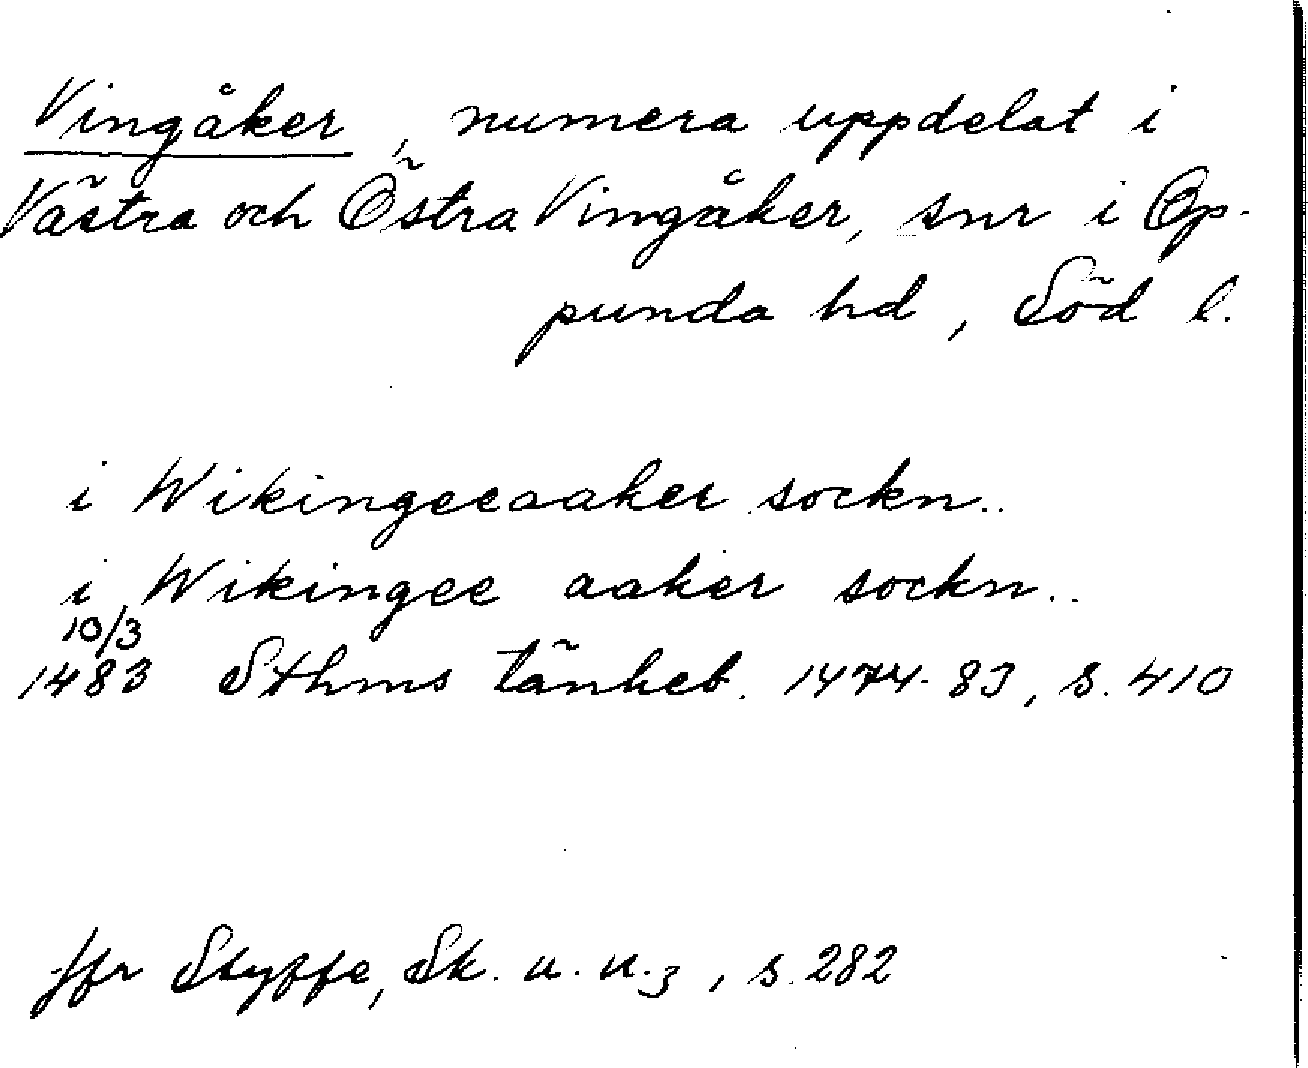 Vingåker, numera uppdelat i
Västra och Östra Vingåker, snr i Op-
punda hd, Söd l.
i Wikingeeaaker sockn..
i Wikingee aaker sockn..
10/3
1483 Sthms tänkeb. 1474-83, s. 410
Jfr Styffe, Sk. u. u.3, s. 282